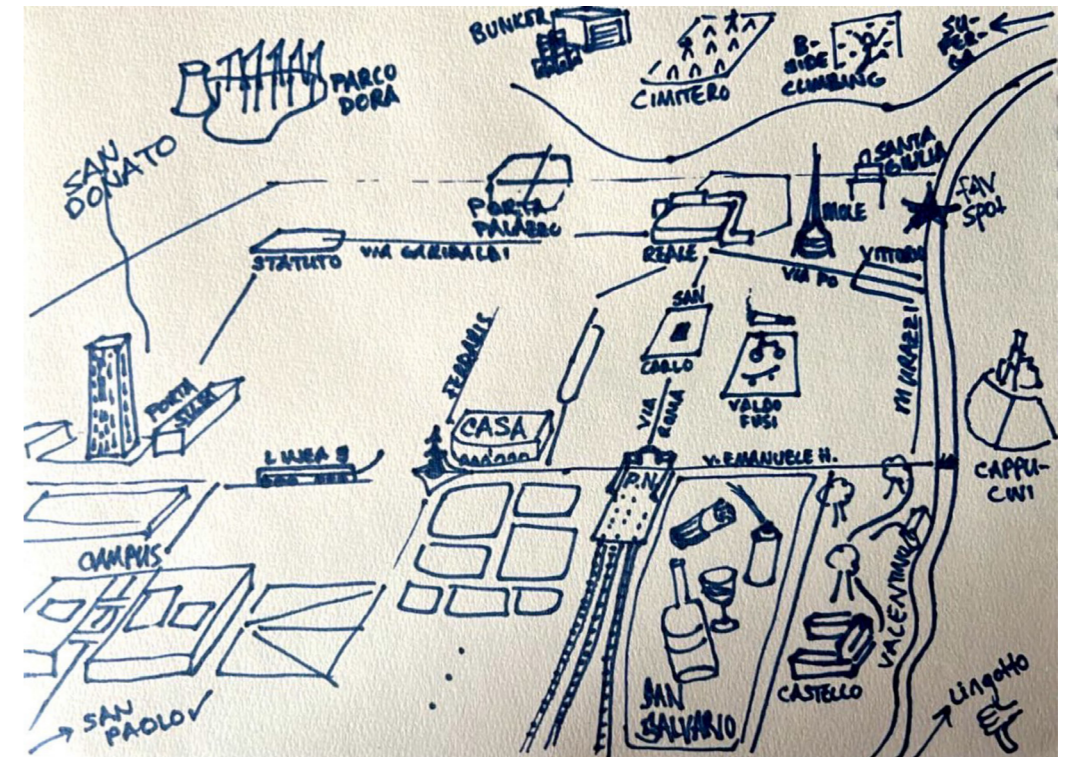 BUNKER
CIMITERO
B-
SIDE
CLIMBING
SU-
PER-
GA
PARCO
DORA
SAN
DONATO
SANTA
GIULIA
FAV
SPOT
PORTA
PALAZZO
MOLE
STATUTO
VIA GARIBALDI
REALE
VIA PO
VITTORIO
SAN
CARLO
FERRARIS
MURAZZI
VALDO
FUSI
VIA
ROMA
PORTA
SUSA
CASA
LINEA 9
P.N.
V. EMANUELE II.
CAPPU-
CINI
CAMPUS
VALENTINO
CASTELLO
SAN
SALVARIO
SAN
PAOLO
Lingotto